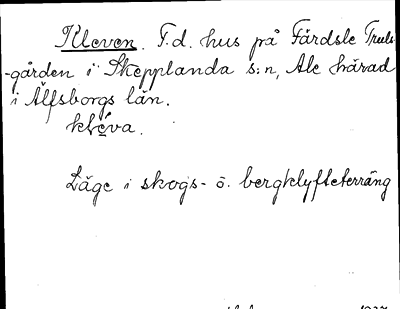 Kleven. F.d. hus på Färdsle Truls-
-gården i Skepplanda s:n, Ale härad
i Älfsborgs län.
kléva.
Läge i skogs- o. bergklyfteterräng